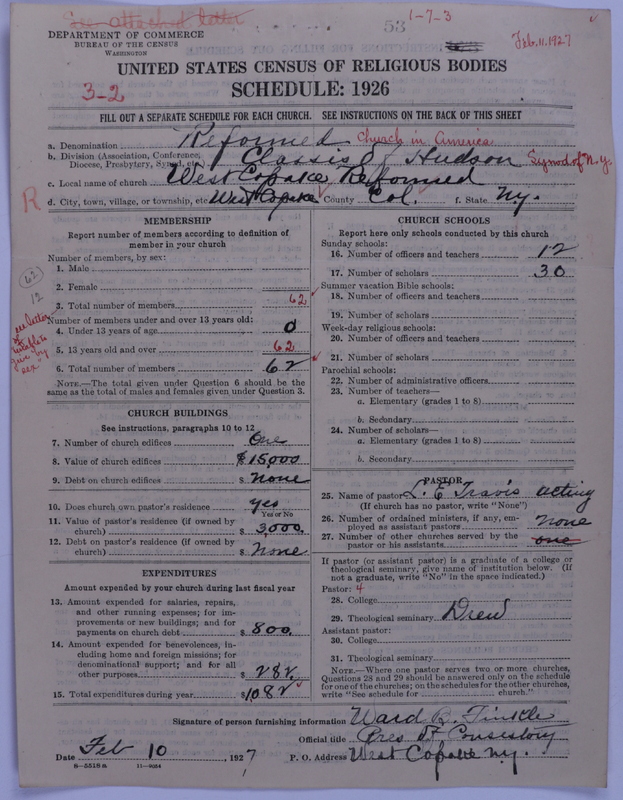 See attached letter
53
1-7-3
DEPARTMENT OF COMMERCE
BUREAU OF THE CENSUS
WASHINGTON
Feb. 11, 1927
UNITED STATES CENSUS OF RELIGIOUS BODIES
3-2
SCHEDULE: 1926
FILL OUT A SEPARATE SCHEDULE FOR EACH CHURCH. SEE INSTRUCTIONS ON THE BACK OF THIS SHEET
a. Denomination Reformed Church in America
b. Division (Association, Conference, Diocese, Presbytery, Synod, etc.) Classis of Hudson Synod of N.Y.
c. Local name of church West Copake Reformed
R
d. City, town, village, or township, etc. West Copake County Col. f. State N.y.
MEMBERSHIP
Report number of members according to definition of member in your church
Number of members, by sex:
1. Male
2. Female
62
12
3. Total number of members 62
see letter
unable to give "by sex"
Number of members under and over 13 years old:
4. Under 13 years of age 0
5. 13 years old and over 62
6. Total number of members 62
NOTE.—The total given under Question 6 should be the same as the total of males and females given under Question 3.
CHURCH BUILDINGS
See instructions, paragraphs 10 to 12
7. Number of church edifices One
8. Value of church edifices $15000
9. Debt on church edifices $ None
10. Does church own pastor's residence yes
Yes or No
11. Value of pastor's residence (if owned by church) $ 3,000.
12. Debt on pastor's residence (if owned by church) $ None
EXPENDITURES
Amount expended by your church during last fiscal year
13. Amount expended for salaries, repairs, and other running expenses; for improvements or new buildings; and for payments on church debt $ 800.
14. Amount expended for benevolences, including home and foreign missions; for denominational support; and for all other purposes $ 282.
15. Total expenditures during year $1082
CHURCH SCHOOLS
Report here only schools conducted by this church
Sunday schools:
16. Number of officers and teachers 12
17. Number of scholars 30
Summer vacation Bible schools:
18. Number of officers and teachers
19. Number of scholars
Week-day religious schools:
20. Number of officers and teachers
21. Number of scholars
Parochial schools:
22. Number of administrative officers
23. Number of teachers—
a. Elementary (grades 1 to 8)
b. Secondary
24. Number of scholars—
a. Elementary (grades 1 to 8)
b. Secondary
PASTOR
25. Name of pastor L. E. Travis acting
(If church has no pastor, write "None")
26. Number of ordained ministers, if any, employed as assistant pastors none
27. Number of other churches served by the pastor or his assistants one
If pastor (or assistant pastor) is a graduate of a college or theological seminary, give name of institution below. (If not a graduate, write "No" in the space indicated.)
Pastor: 4
28. College
29. Theological seminary Drew
Assistant pastor:
30. College
31. Theological seminary
NOTE.—Where one pastor serves two or more churches, Questions 28 and 29 should be answered only on the schedule for one of the churches; on the schedules for the other churches, write "See schedule for church."
Signature of person furnishing information Ward B. Tinkle
Official title Pres of Consistory
Date Feb 10, 1927 P. O. Address West Copake N.y.
8-5518a 11-9034